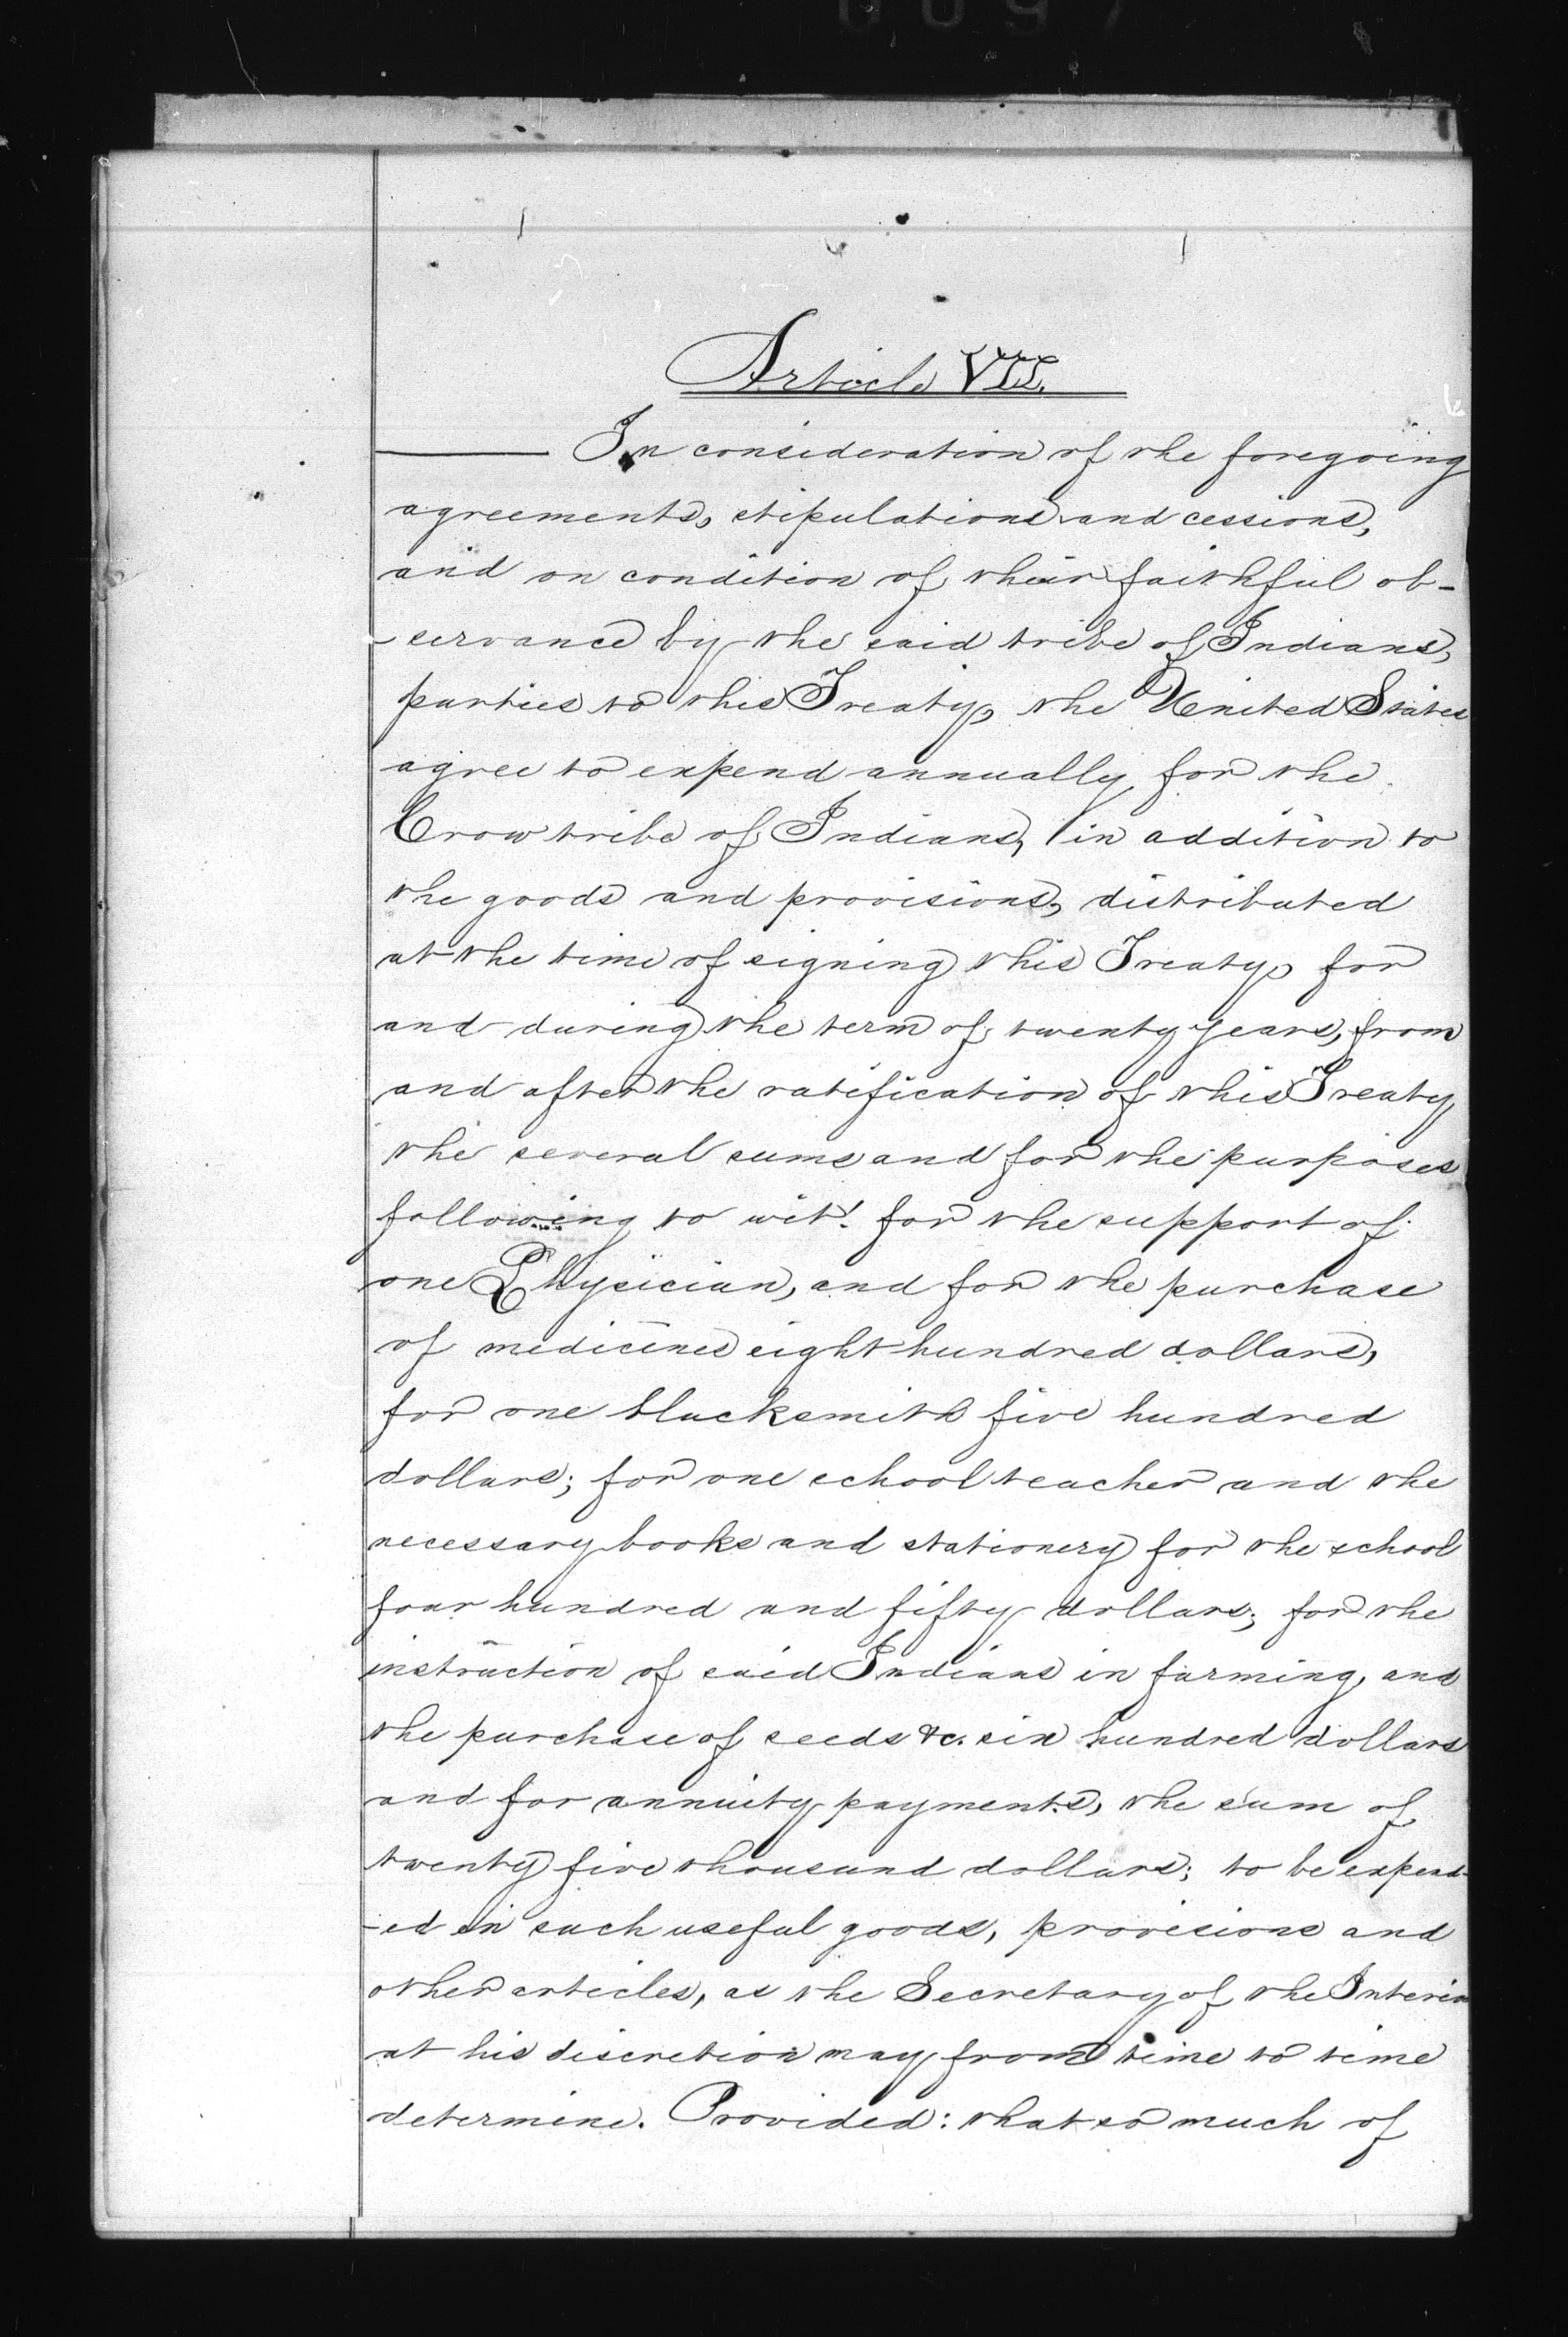 Article VII.
In consideration of the foregoing
agreements, stipulations and cessions,
and on condition of their faithful ob-
-servance by the said tribe of Indians,
parties to this Treaty, the United States
agree to expend annually for the
Crow tribe of Indians, in addition to
the goods and provisions, distributed
at the time of signing this Treaty, for
and during the term of twenty years, from
and after the ratification of this Treaty
the several sums and for the purposes
following to wit: for the support of
one Physician, and for the purchase
of medicines eight hundred dollars,
for one blacksmith five hundred
dollars; for one school teacher and the
necessary books and stationery for the school
four hundred and fifty dollars; for the
instruction of said Indians in farming, and
the purchase of seeds &c. six hundred dollars
and for annuity payments, the sum of
twenty five thousand dollars; to be expend-
-ed in such useful goods, provisions and
other articles, as the Secretary of the Interior
at his discretion may from time to time
determine. Provided: that so much of